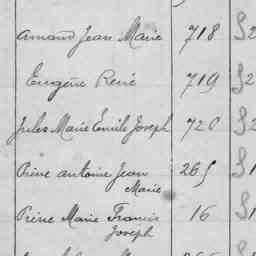 Armand Jean Marie 718 S 2
Eugène René 719 S 2
Jules Marie Emile Joseph 720 S 2
Pierre Antoine Jean 265 S 1
Marie
Pierre Marie Francis 16 S 1
Joseph